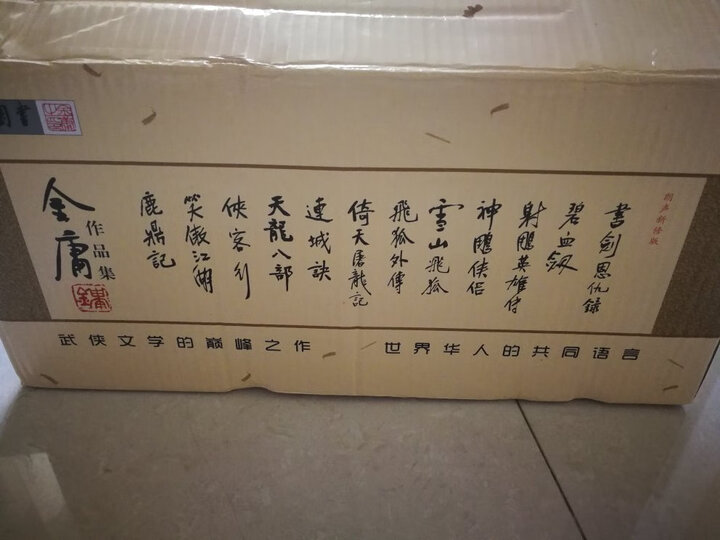 圖書
朗声新修版
書劍恩仇録
碧血劍
射鵰英雄傳
神鵰俠侶
雪山飛狐
飛狐外傳
倚天屠龍記
連城訣
天龍八部
俠客行
笑傲江湖
鹿鼎記
金庸
作品集
武侠文学的巅峰之作 世界华人的共同语言